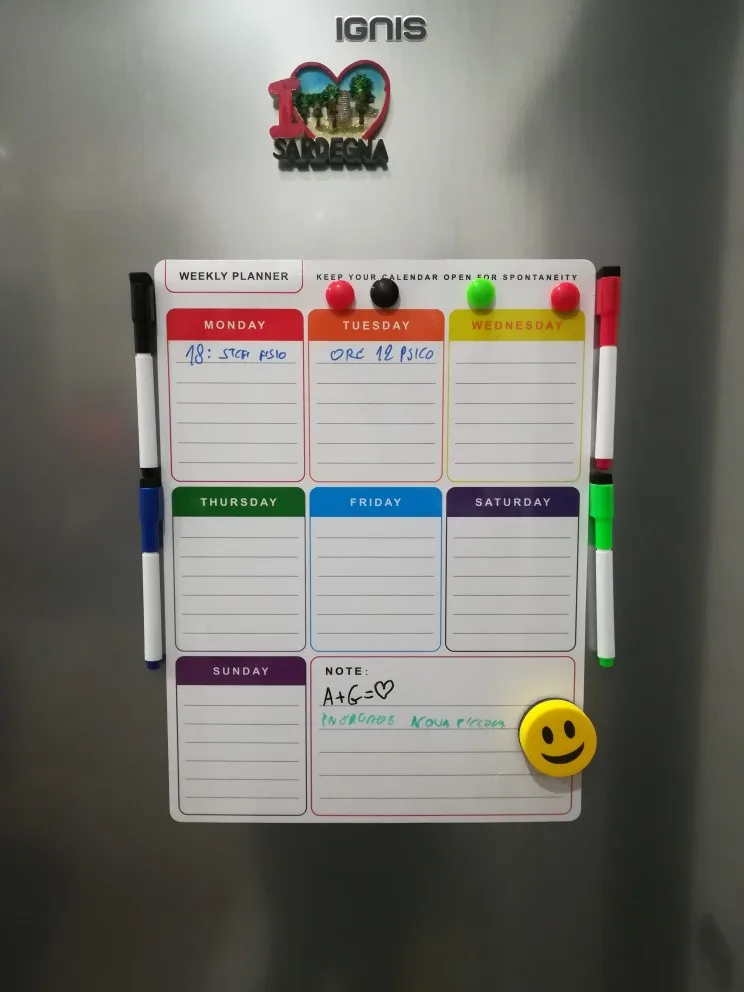 IGNIS
I
SARDEGNA
WEEKLY PLANNER
KEEP YOUR CALENDAR OPEN FOR SPONTANEITY
MONDAY
TUESDAY
WEDNESDAY
18:
ORE 12 PSICO
THURSDAY
FRIDAY
SATURDAY
SUNDAY
NOTE:
A+G=♡